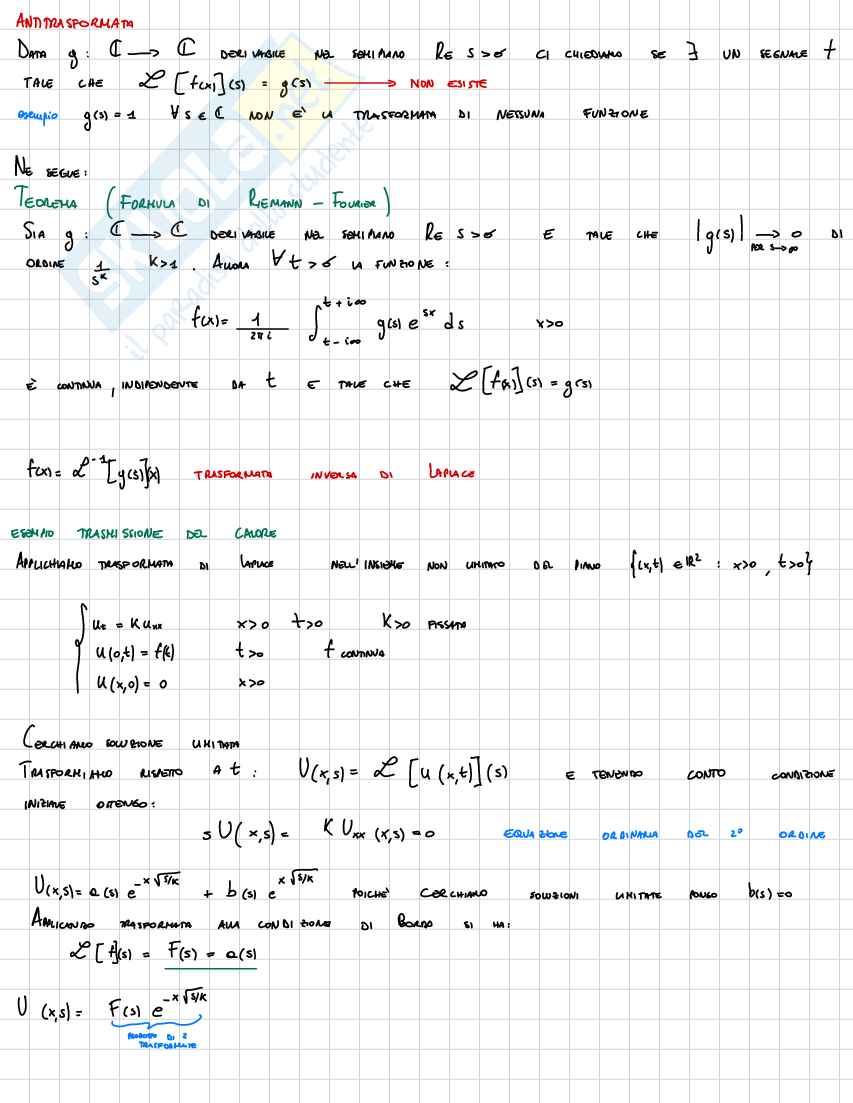 ANTITRASFORMATA
DATA g: ℂ → ℂ DERIVABILE NEL SEMIPIANO Re s>σ CI CHIEDIAMO SE ∃ UN SEGNALE f
TALE CHE ℒ[f(x)](s) = g(s) → NON ESISTE
esempio g(s) = 1 ∀ s ∈ ℂ NON È LA TRASFORMATA DI NESSUNA FUNZIONE
NE SEGUE:
TEOREMA (FORMULA DI RIEMANN - FOURIER)
SIA g: ℂ → ℂ DERIVABILE NEL SEMIPIANO Re s>σ E TALE CHE |g(s)| → 0 DI
PER s→∞
ORDINE 1/s^k K>1. ALLORA ∀ t>σ LA FUNZIONE:
f(x) = 1/(2πi) ∫_{t-i∞}^{t+i∞} g(s) e^{sx} ds x>0
È CONTINUA, INDIPENDENTE DA t E TALE CHE ℒ[f(x)](s) = g(s)
f(x) = ℒ^{-1}[g(s)](x) TRASFORMATA INVERSA DI LAPLACE
ESEMPIO TRASMISSIONE DEL CALORE
APPLICHIAMO TRASFORMATA DI LAPLACE NELL'INSIEME NON LIMITATO DEL PIANO {(x,t) ∈ ℝ² : x>0, t>0}
u_t = K u_xx x>0 t>0 K>0 FISSATO
u(0,t) = f(t) t>0 f CONTINUA
u(x,0) = 0 x>0
CERCHIAMO SOLUZIONE LIMITATA
TRASFORMIAMO RISPETTO A t: U(x,s) = ℒ[u(x,t)](s) E TENENDO CONTO CONDIZIONE
INIZIALE OTTENGO:
s U(x,s) = K U_xx (x,s) = 0 EQUAZIONE ORDINARIA DEL 2° ORDINE
U(x,s) = a(s) e^{-x√(s/K)} + b(s) e^{x√(s/K)} POICHÈ CERCHIAMO SOLUZIONI LIMITATE PONGO b(s)=0
APPLICANDO TRASFORMATA ALLA CONDIZIONE DI BORDO SI HA:
ℒ[f](s) = F(s) = a(s)
U(x,s) = F(s) e^{-x√(s/K)}
PRODOTTO DI 2
TRASFORMATE
SKUOLA.net
il paradiso dello studente